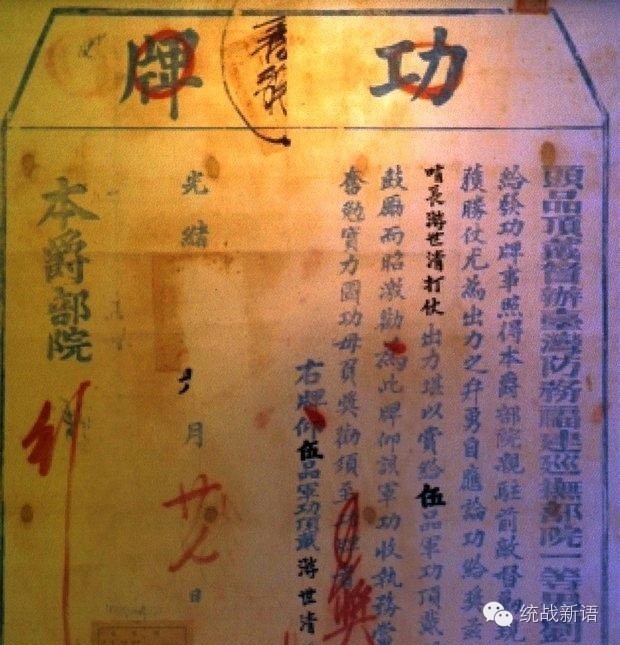 功牌
頭品頂戴督辦臺灣防務福建巡撫部院一等男劉
給發功牌事照得本爵部院親駐前敵督
現
獲勝仗尤為出力之弁勇自應論功給獎茲
哨長游世清打仗出力堪以賞給伍品軍功頂戴
鼓勵而昭激勸為此牌仰該軍功收執務當
奮勉實力圖功毋負獎勸須至功牌者
右牌仰伍品軍功頂戴游世清
光緒
月廿八日
本爵部院
獎
统战新语